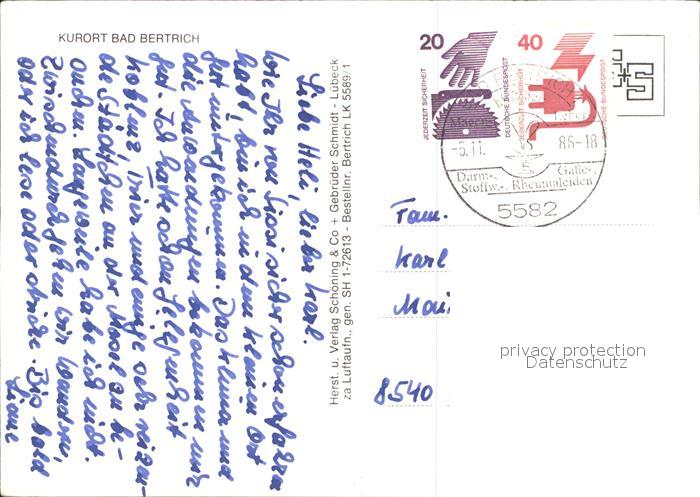 KURORT BAD BERTRICH
Liebe Heli, lieber Karl.
wie Ihr von Sissi sicher schon erfahren
habt, bin ich in dem kleinen Ort
gut untergekommen. Das Klima und
die Anwendungen bekommen mir
gut. Ich hatte schon Gelegenheit
Koblenz, Trier und einige sehr reizen-
de Städtchen an der Mosel zu be-
suchen. Langeweile habe ich nicht.
Zwischendurch gehen wir wandern,
oder ich lese oder stricke. Bis bald
Liane
Herst. u. Verlag Schöning & Co + Gebrüder Schmidt - Lübeck
za Luftaufn., gen. SH 1-72613 - Bestellnr. Bertrich LK 5589/1
20
JEDERZEIT SICHERHEIT
DEUTSCHE BUNDESPOST
40
JEDERZEIT SICHERHEIT
DEUTSCHE BUNDESPOST
-5.11. 86-18
Darm-, Galle-,
Stoffw.-, Rheumaleiden
5582
Fam.
Karl
Mai
8540
privacy protection
Datenschutz